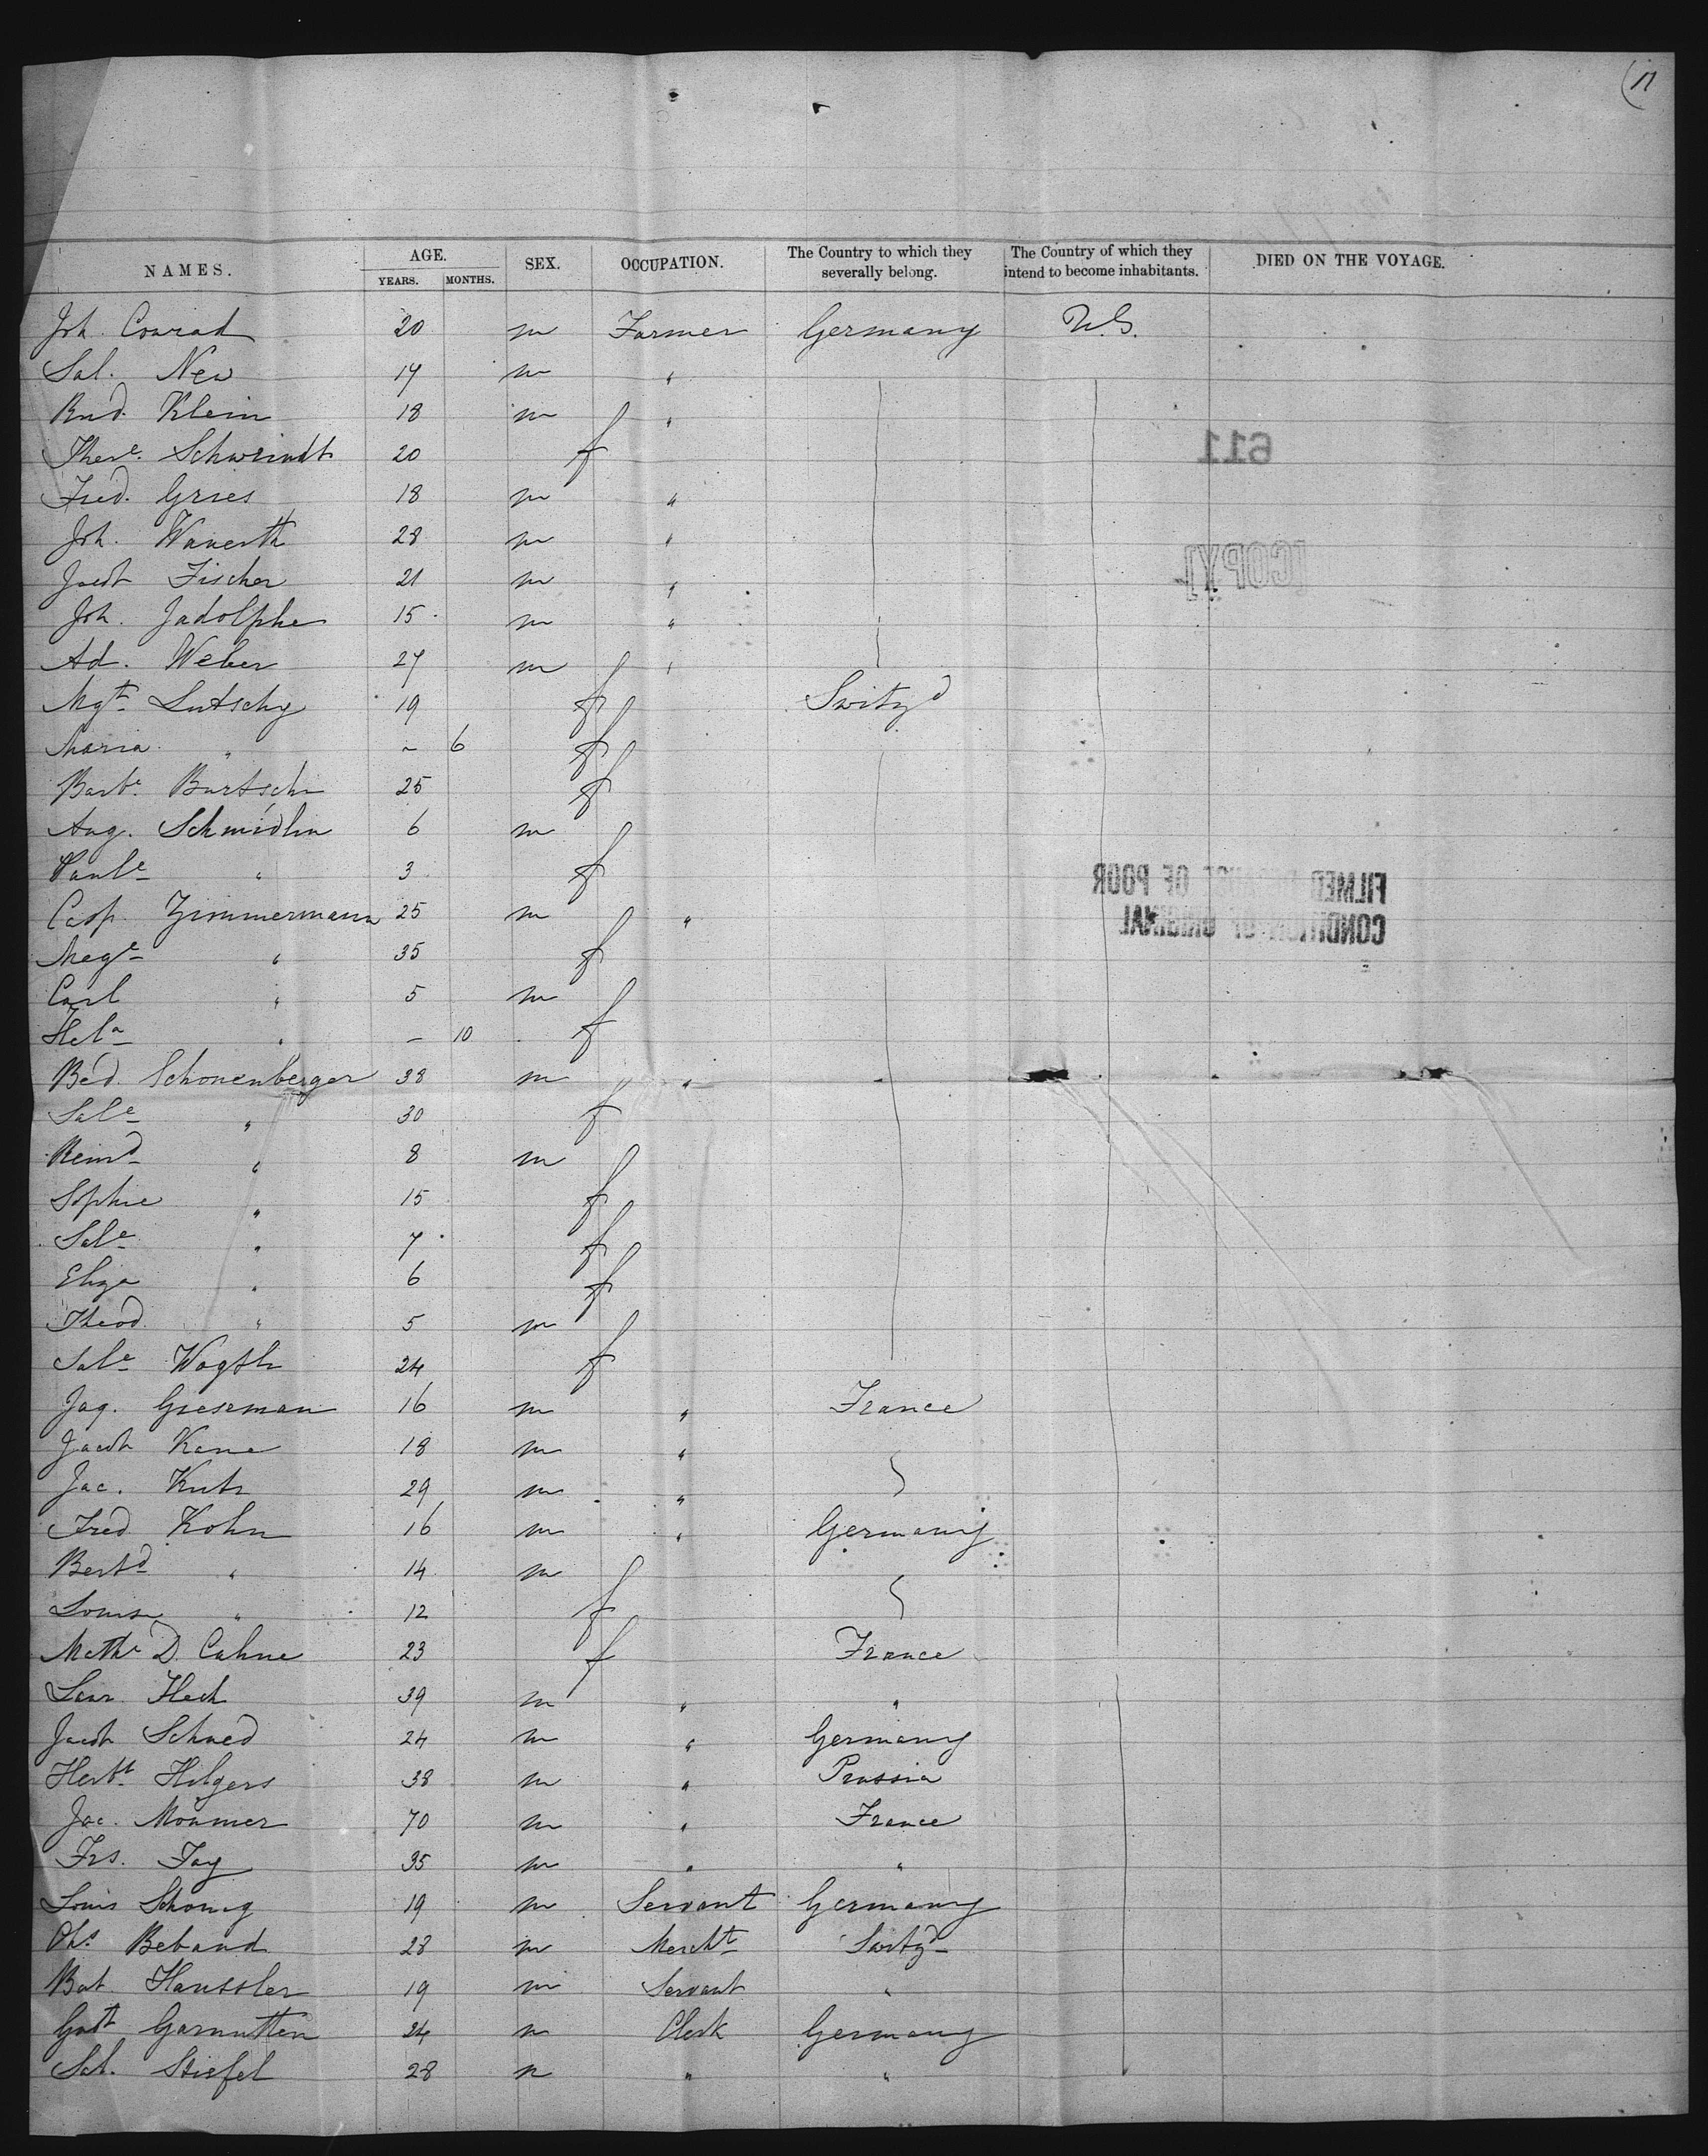 (11
NAMES. AGE. YEARS. MONTHS. SEX. OCCUPATION. The Country to which they severally belong. The Country of which they intend to become inhabitants. DIED ON THE VOYAGE.
Joh. Conrad 20 m Farmer Germany U.S.
Sal. New 17 m "
Rud. Klein 18 m "
Ther.e Schwrindt 20 f
Fred. Gries 18 m "
Joh. Wanerth 28 m "
Jacob Fischer 21 m "
Joh. Jadolphe 15 m "
Ad. Weber 27 m "
Mgt. Lutschy 19 f Switzd
Maria " - 6 f
Barb.e Burtschi 25 f
Aug. Schmidlin 6 m
Paule " 3 f
Casp. Zimmermann 25 m "
Mege " 35 f
Carl " 5 m
Hela " - 10 f
Bed. Schonenberger 38 m "
Sale " 30 f
Reind " 8 m
Sophie " 15 f
Sale " 7 f
Eliza " 6 f
Theod. " 5 m
Sale Wogth 24 f
Jaq. Gieseman 16 m " France
Jacob Kane 18 m "
Jac. Kutz 29 m "
Fred Kohn 16 m " Germany
Bertd " 14 m
Louise " 12 f
Mathe D. Cahne 23 f France
Laur. Heck 39 m " "
Jacob Schned 24 m " Germany
Herbt Hilgers 38 m " Prussia
Jac. Monmer 70 m " France
Frs. Fay 35 m " "
Louis Schonig 19 m Servant Germany
Chs Beband 28 m Mercht Switzd
Bat. Haussler 19 m Servant "
Gust Garnutten 24 m Clerk Germany
Sal. Stiefel 28 m " "
611
[COPY]
FILMED BECAUSE OF POOR
CONDITION OF ORIGINAL